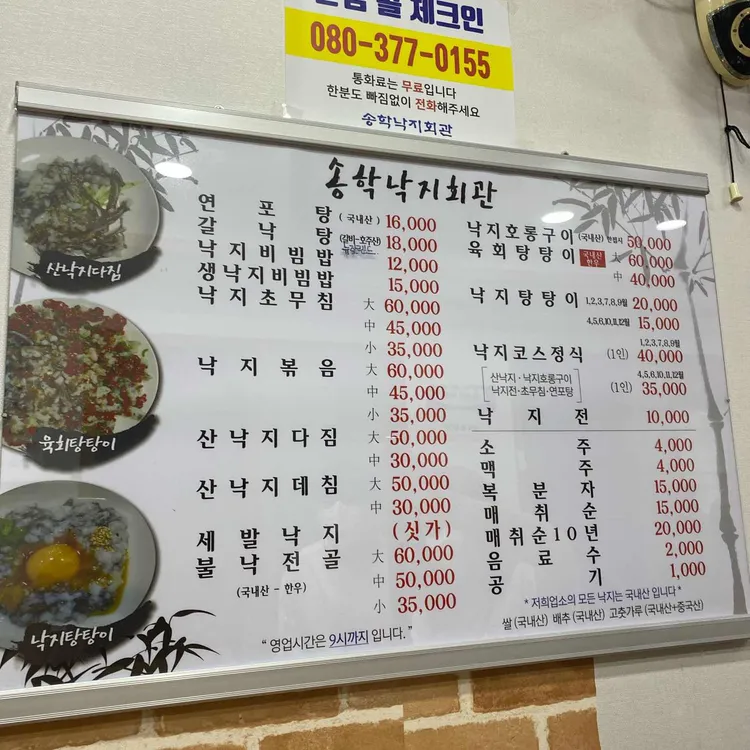 080-377-0155
통화료는 무료입니다
한분도 빠짐없이 전화해주세요
송학낙지회관
송학낙지회관
산낙지다짐
육회탕탕이
낙지탕탕이
연포탕 (국내산) 16,000
갈낙탕 (갈비-호주산) 18,000
낙지비빔밥 12,000
생낙지비빔밥 15,000
낙지초무침 大 60,000
中 45,000
小 35,000
낙지볶음 大 60,000
中 45,000
小 35,000
산낙지다짐 大 50,000
中 30,000
산낙지데침 大 50,000
中 30,000
세발낙지 (싯가)
불낙전골 大 60,000
(국내산 - 한우) 中 50,000
小 35,000
" 영업시간은 9시까지 입니다. "
낙지호롱구이 (국내산) 한접시 50,000
육회탕탕이 국내산 한우 大 60,000
中 40,000
낙지탕탕이 1,2,3,7,8,9월 20,000
4,5,6,10,11,12월 15,000
1,2,3,7,8,9월
낙지코스정식 (1인) 40,000
4,5,6,10,11,12월
(1인) 35,000
산낙지 · 낙지호롱구이
낙지전 · 초무침 · 연포탕
낙지전 10,000
소주 4,000
맥주 4,000
복분자 15,000
매취순 15,000
매취순10년 20,000
음료수 2,000
공기 1,000
* 저희업소의 모든 낙지는 국내산 입니다 *
쌀 (국내산) 배추 (국내산) 고춧가루 (국내산+중국산)